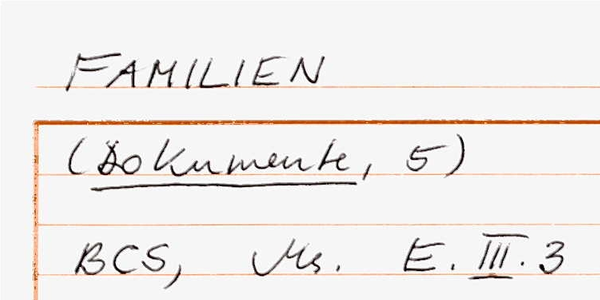 FAMILIEN
(Dokumente, 5)
BCS, Ms. E.III.3